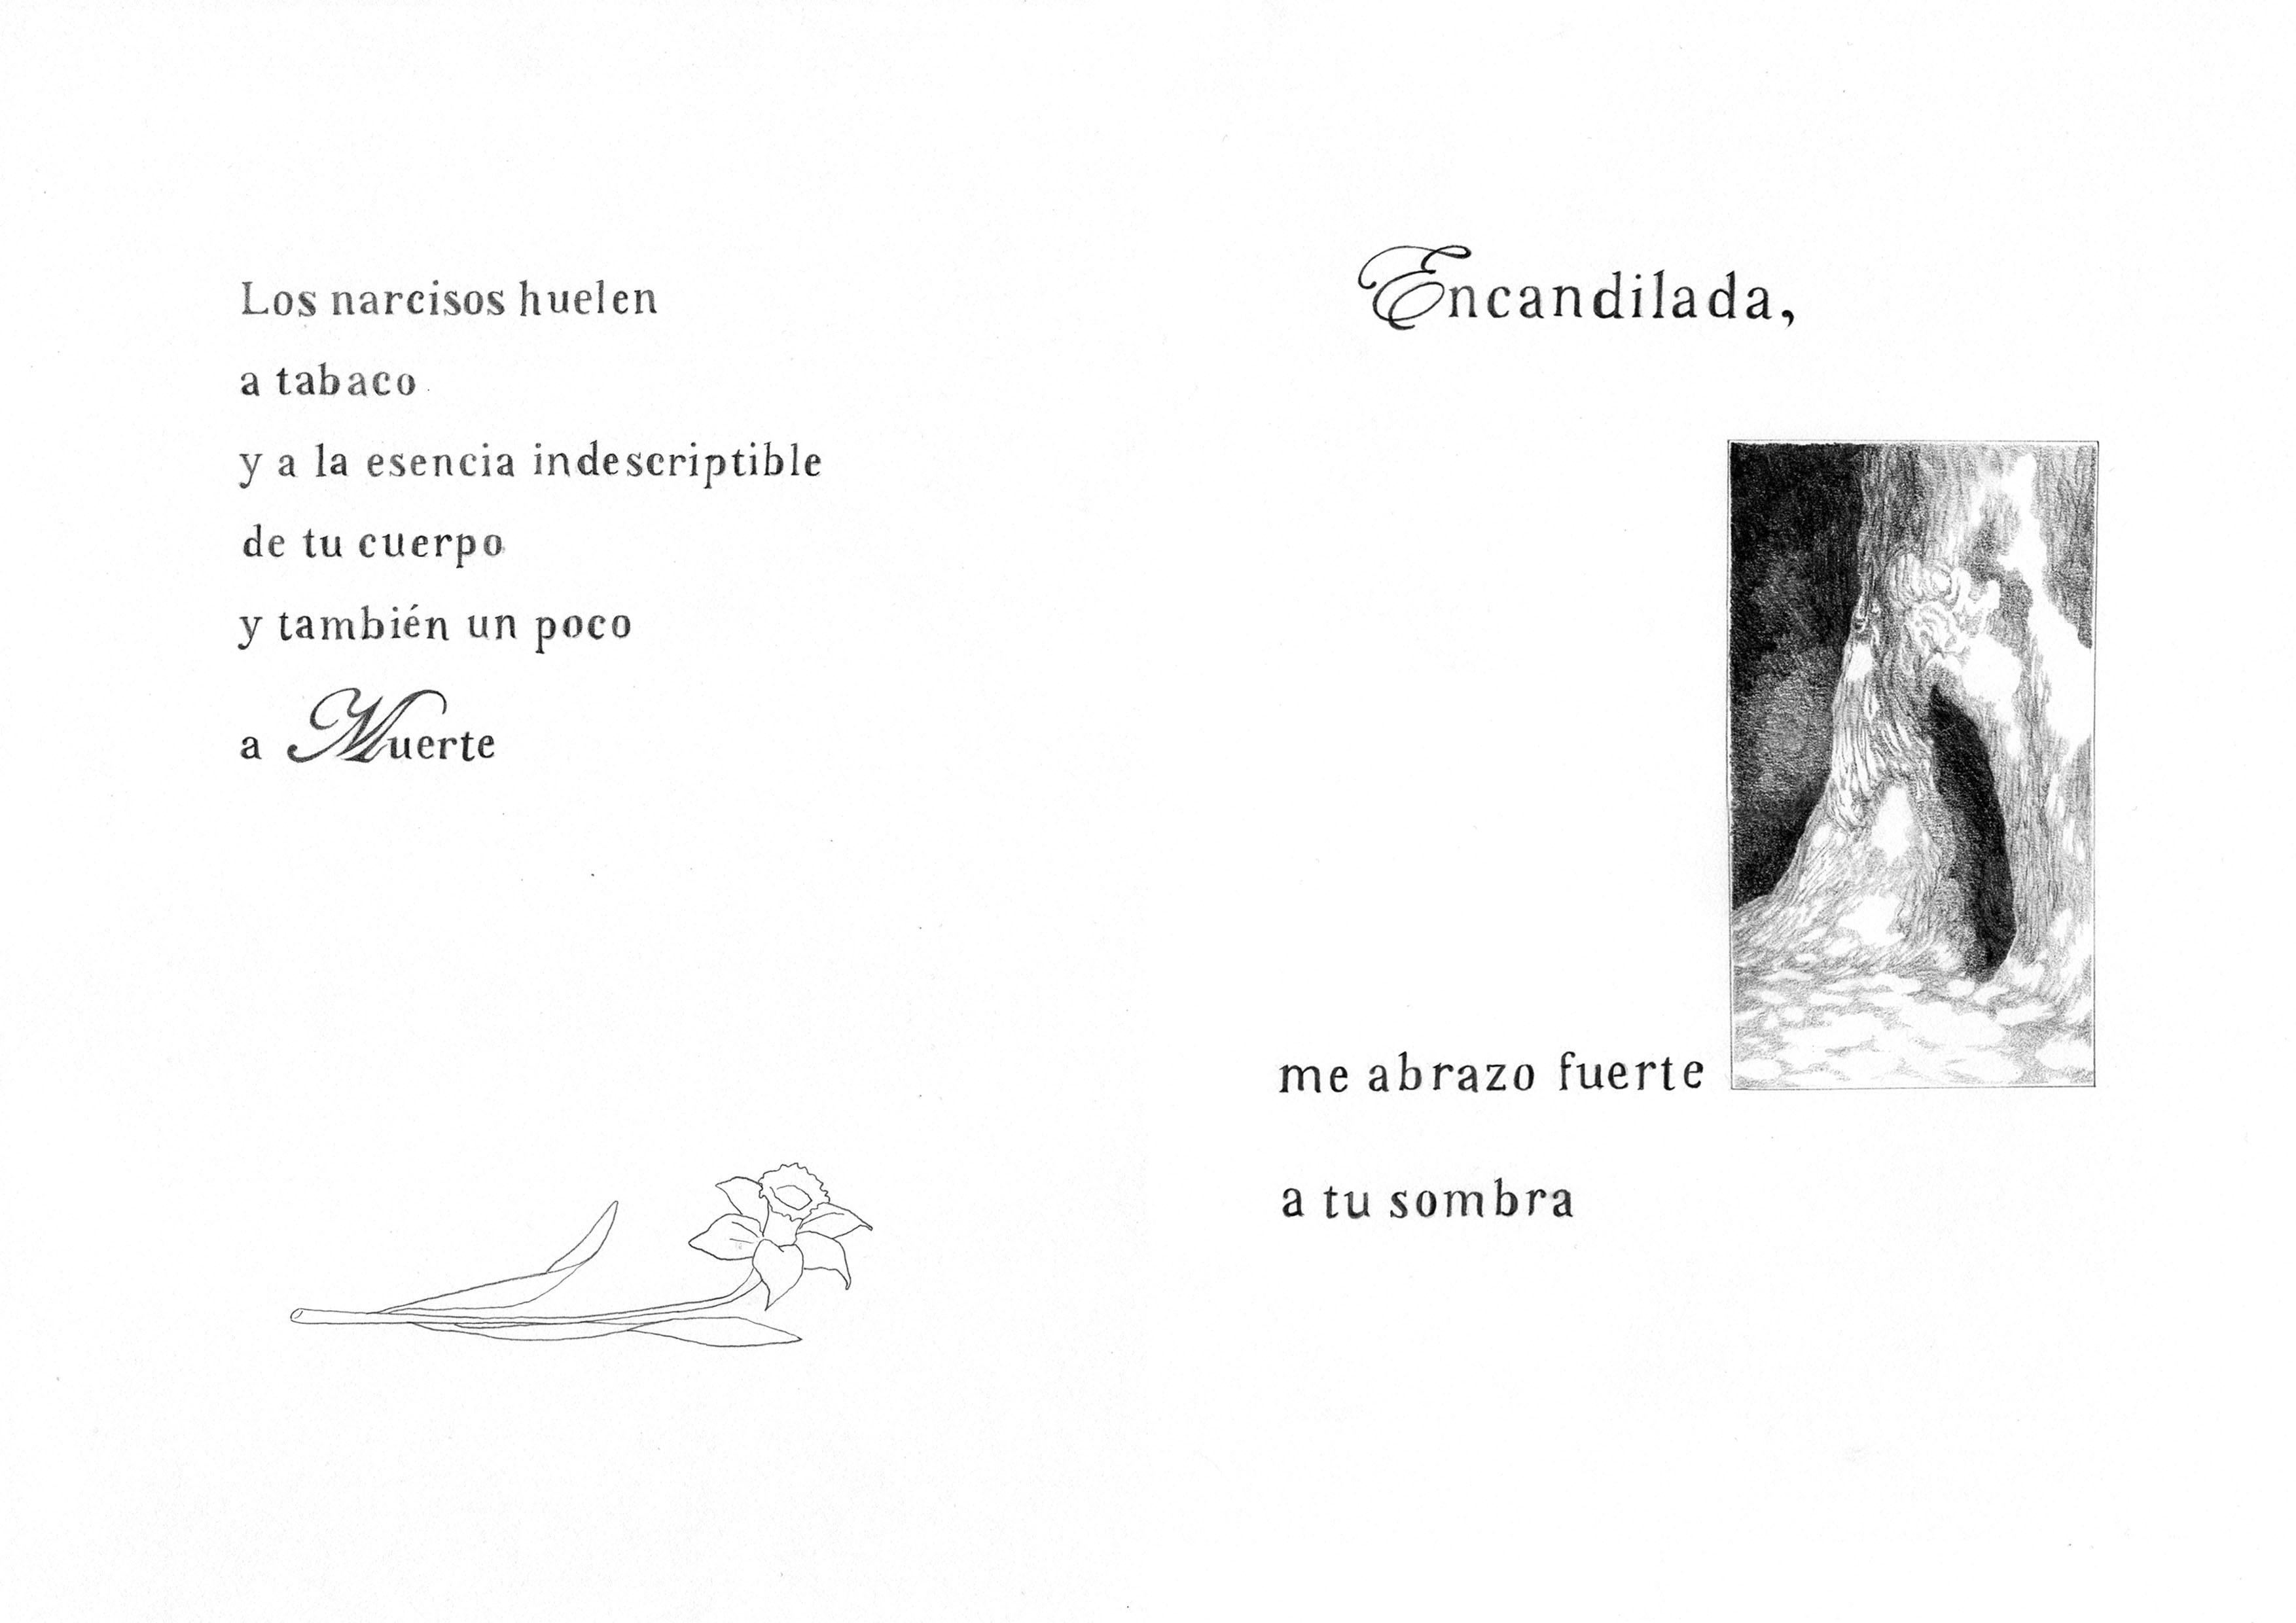 Los narcisos huelen
a tabaco
y a la esencia indescriptible
de tu cuerpo
y también un poco
a Muerte
Encandilada,
me abrazo fuerte
a tu sombra